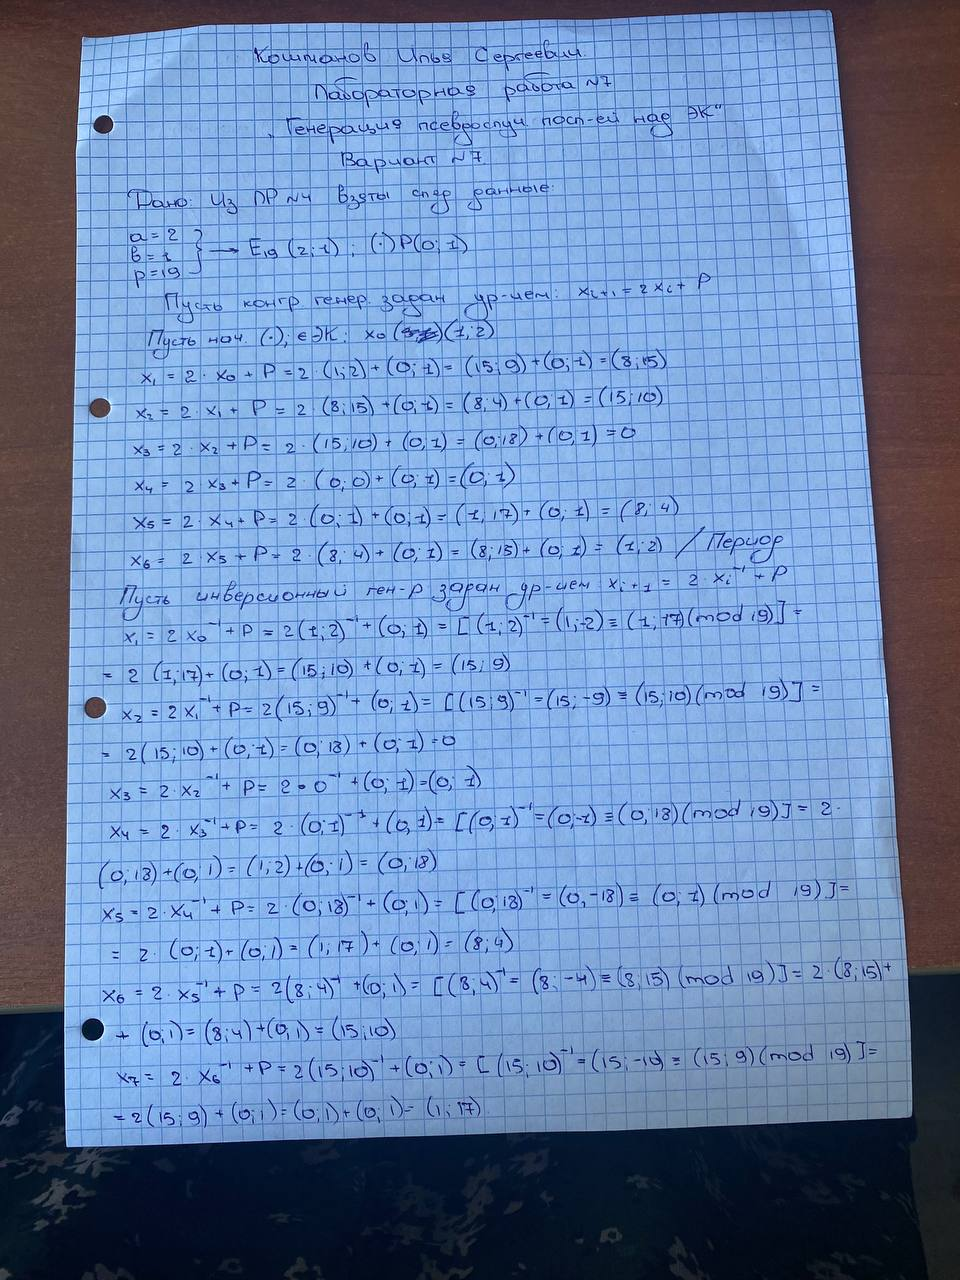 Кошманов Илья Сергеевич.
Лабораторная работа №7
„Генерация псевдослуч посл-ей над ЭК"
Вариант №7
Дано: Из ЛР №4 взяты след данные:
a = 2
в = 1
p = 19
→ E₁₉ (2; 1) ; (·) P(0; 1)
Пусть конгр генер. задан ур-ием: xᵢ₊₁ = 2xᵢ + P
Пусть нач. (·), ∈ ЭК: x₀ (1; 2)
x₁ = 2 · x₀ + P = 2 · (1; 2) + (0; 1) = (15; 9) + (0; 1) = (8; 15)
x₂ = 2 · x₁ + P = 2 · (8; 15) + (0; 1) = (8; 4) + (0; 1) = (15; 10)
x₃ = 2 · x₂ + P = 2 · (15; 10) + (0; 1) = (0; 18) + (0; 1) = 0
x₄ = 2 x₃ + P = 2 · (0; 0) + (0; 1) = (0; 1)
x₅ = 2 · x₄ + P = 2 · (0; 1) + (0; 1) = (1; 17) + (0; 1) = (8; 4)
x₆ = 2 x₅ + P = 2 · (8; 4) + (0; 1) = (8; 15) + (0; 1) = (1; 2) / Период
Пусть инверсионный ген-р задан ур-ием xᵢ₊₁ = 2 · xᵢ⁻¹ + P
x₁ = 2 x₀⁻¹ + P = 2 (1; 2)⁻¹ + (0; 1) = [ (1; 2)⁻¹ = (1; -2) ≡ (1; 17) (mod 19) ] =
= 2 (1; 17) + (0; 1) = (15; 10) + (0; 1) = (15; 9)
x₂ = 2 x₁⁻¹ + P = 2 (15; 9)⁻¹ + (0; 1) = [ (15; 9)⁻¹ = (15; -9) ≡ (15; 10) (mod 19) ] =
= 2 (15; 10) + (0; 1) = (0; 18) + (0; 1) = 0
x₃ = 2 · x₂⁻¹ + P = 2 · 0⁻¹ + (0; 1) = (0; 1)
x₄ = 2 · x₃⁻¹ + P = 2 · (0; 1)⁻¹ + (0; 1) = [ (0; 1)⁻¹ = (0; -1) ≡ (0; 18) (mod 19) ] = 2 ·
(0; 18) + (0; 1) = (1; 2) + (0; 1) = (0; 18)
x₅ = 2 · x₄⁻¹ + P = 2 · (0; 18)⁻¹ + (0; 1) = [ (0; 18)⁻¹ = (0, -18) ≡ (0; 1) (mod 19) ] =
= 2 · (0; 1) + (0; 1) = (1; 17) + (0; 1) = (8; 4)
x₆ = 2 · x₅⁻¹ + P = 2 (8; 4)⁻¹ + (0; 1) = [ (8; 4)⁻¹ = (8; -4) ≡ (8; 15) (mod 19) ] = 2 · (8; 15) +
+ (0; 1) = (8; 4) + (0; 1) = (15; 10)
x₇ = 2 · x₆⁻¹ + P = 2 (15; 10)⁻¹ + (0; 1) = [ (15; 10)⁻¹ = (15; -10) ≡ (15; 9) (mod 19) ] =
= 2 (15; 9) + (0; 1) = (0; 1) + (0; 1) = (1; 17)